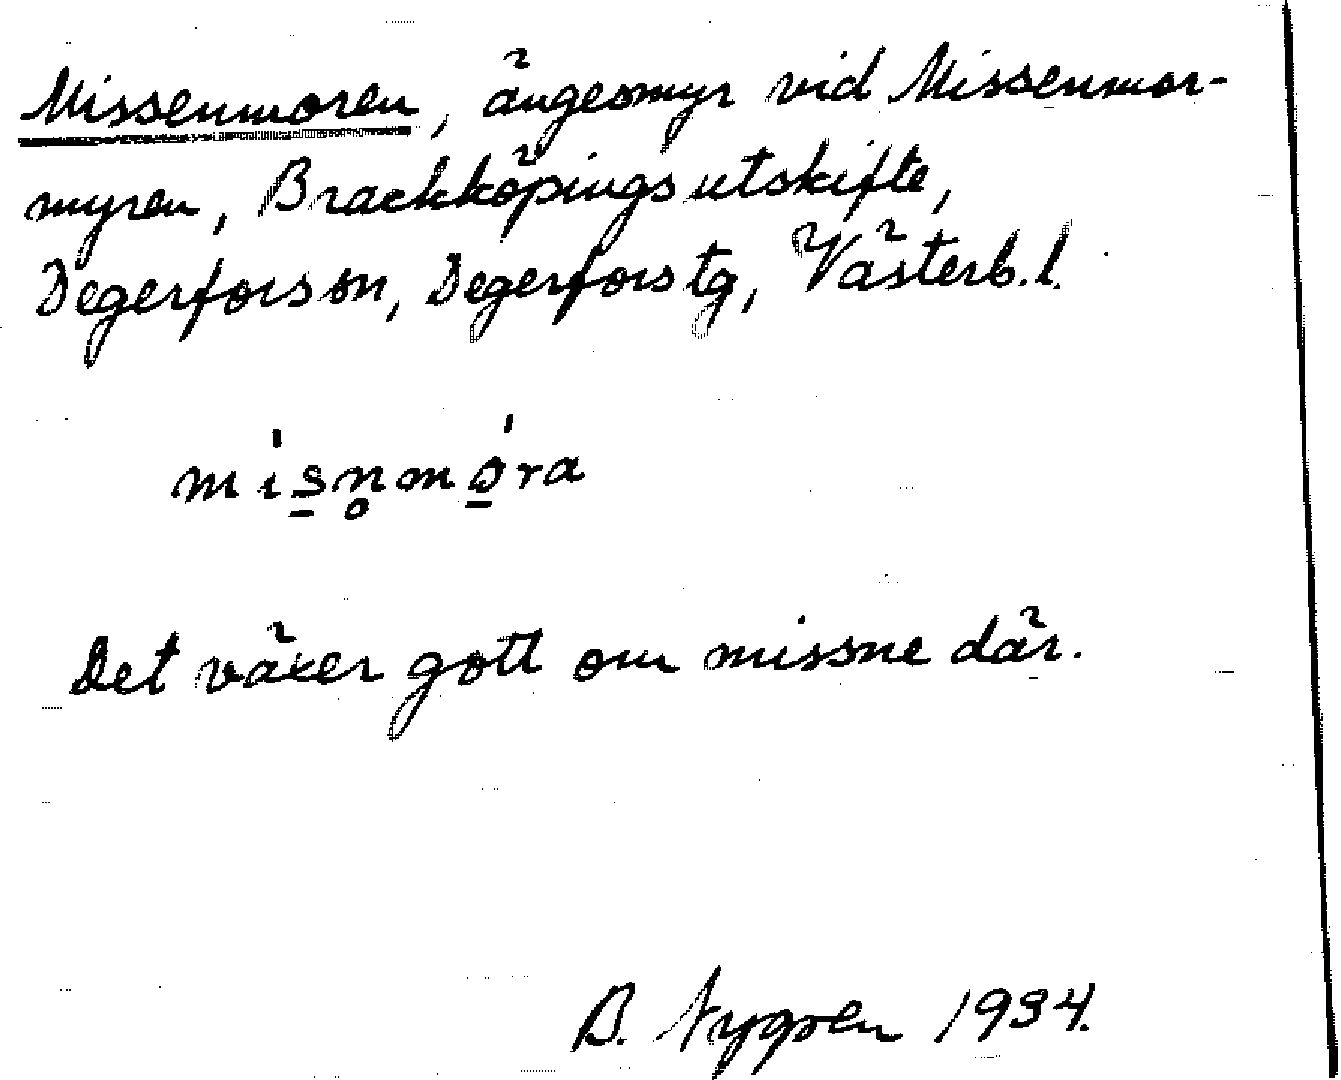 Missenmoren, ängesmyr vid Missenmor-
myren, Brackköpings utskifte,
Degerfors sn, Degerfors tg, Västerb. l.
mi̍s̲n̥mo̲̍ra
Det växer gott om missne där.
B. Nygren 1934.